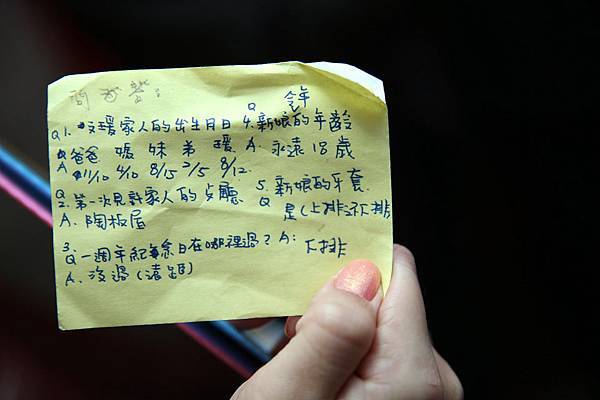 Q1. 玟瑗家人的出生月日
爸爸 媽 妹 弟 瑗
A 11/10 4/10 8/15 2/5 8/12
Q
2. 第一次見許家人的
A. 陶板屋
3.
Q 一週年紀念日在哪裡過?
A. 沒過
Q 今年
4. 新娘的年齡
A. 永遠18歲
5. 新娘的牙套
Q 是(上排還下排
A: 下排